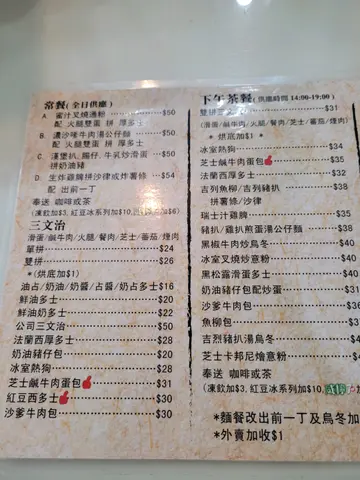 常餐(全日供應)
A 蜜汁叉燒通粉 $50
配 火腿雙蛋 拼 厚多士
B. 濃沙嗲牛肉湯公仔麵 $50
配 火腿雙蛋 拼 厚多士
C. 漢堡扒,腸仔,牛乳炒滑蛋 $50
拼奶油豬
D. 生炸雞脾拼沙律或炸薯條 $54
配 出前一丁
奉送 咖啡或茶
(凍飲加$3,紅豆冰系列加$10,加$6)
三文治
滑蛋/鹹牛肉/火腿/餐肉/芝士/蕃茄/煙肉
單拼 $24
雙拼 $26
*(烘底加$1)
油占/奶油/奶醬/占醬/奶占多士$16
鮮油多士 $20
鮮油奶多士 $22
公司三文治 $50
法蘭西厚多士 $28
奶油豬仔包 $20
冰室熱狗 $28
芝士鹹牛肉蛋包 $31
紅豆西多士 $30
沙爹牛肉包 $30
下午茶餐(供應時間14:00-19:00)
$31
(滑蛋/鹹牛肉/火腿/餐肉/芝士/蕃茄/煙肉)
*烘底加$1 *
冰室熱狗 $34
芝士鹹牛肉蛋包 $35
法蘭西厚多士 $32
吉列魚柳/吉列豬扒 $38
拼薯條/沙律
瑞士汁雞脾 $35
豬扒/雞扒煎蛋湯公仔麵 $38
黑椒牛肉炒烏冬 $4
冰室叉燒炒意粉 $4
黑松露滑蛋多士 $4
奶油豬仔包配炒蛋 $
沙爹牛肉包 $36
魚柳包 $3
吉烈豬扒湯烏冬 $4
芝士卡邦尼燴意粉 $4
奉送 咖啡或茶
(凍飲加$3,紅豆冰系列加$10,
*麵餐改出前一丁及烏冬加
*外賣加收$1